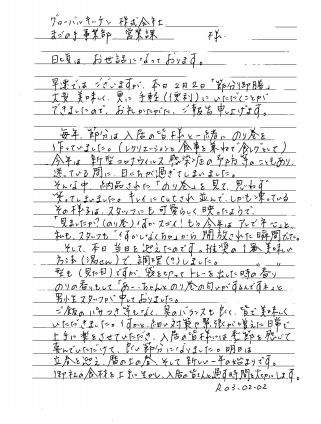 グローバルキッチン 株式会社
まごの手事業部 営業課 様
日頃は お世話になっております。
早速では ございますが、本日2月2日「節分御膳」
大変 美味しく、更に 手軽(便利)に いただくことが
できましたので、お礼かたがた、ご報告申し上げます。
毎年、節分は 入居の皆様と一緒に のり巻を
作っていました。(レクリエーションと食事を兼ねて 食レクとして)
今年は 新型コロナウイルス感染症の予防等のこともあり、
迷っている間に 日にちが過ぎてしまいました。
そんな中、納品された「のり巻」を見て、思わず
笑ってしまいました。キレイに して並んで、しかも凍っている
その様子は、スタッフにも 可愛らしく 映ったようで、
「見ましたか?(のり巻)すごい スゴイ!もう今年は
私も、スタッフも から 開放された時間でした。
そして、本日 当日を迎えたのです。推奨の1番 美味しい
方法(湯せん)で、調理(?)しました。
形も(見た目)ですが 袋をやって トレーを出した時の香り
のりの香りもして「あ~ちゃんとのり巻の匂いがするんですね」と
男性スタッフが 申しておりました。
ご飯のパサつき等もなく、具のバランスも良く、皆で美味しく
いただきました。コロナ対策で緊張が増えた日常で
させていただき、入居の皆様には 季節を感じて
喜んでいただけて、良い節分になりました。明日は
立春を迎え、暦の上の春、そして新しい一年の始まりです。
御社の食材を上手に生かし、入居の皆さんと過す時間を大切にします。
R03.02.02